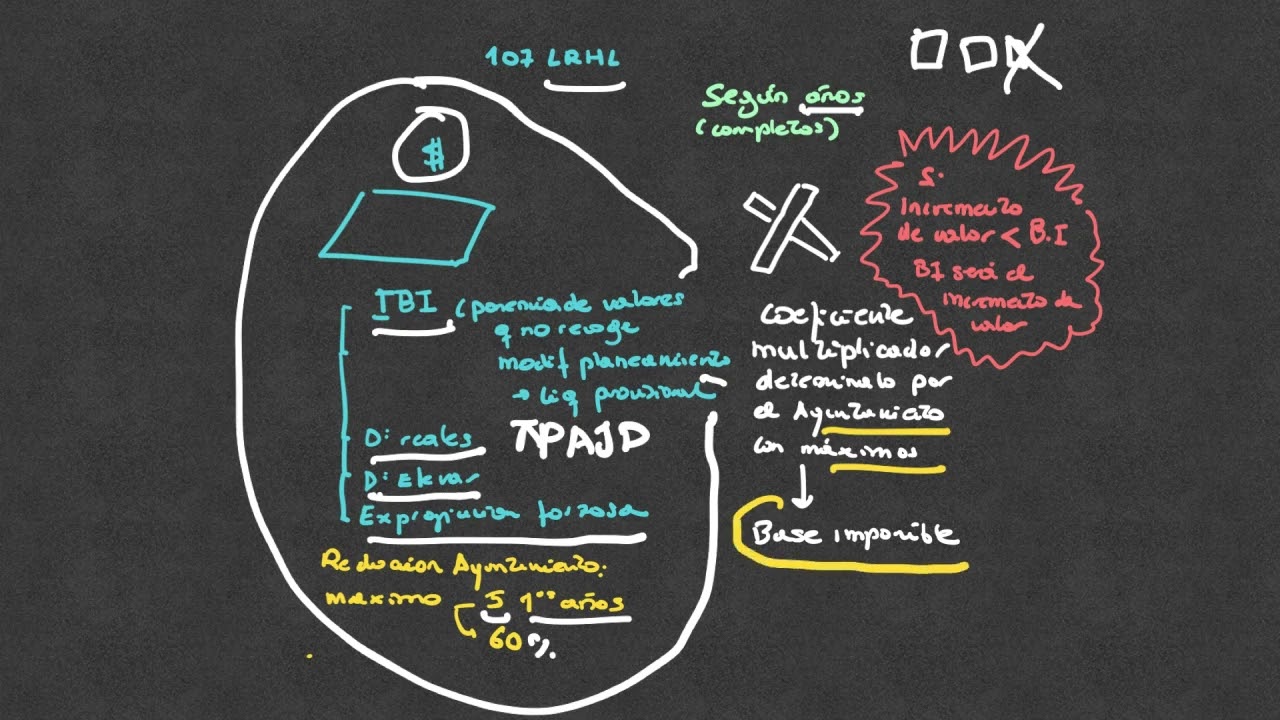 107 LRHL
Según años
(completos)
$
IBI (ponencia de valores
q no recoge
modif planeamiento
→ liq provisional
Dº reales TPAJD
Dº Elevar
Expropiación forzosa
Reducción Ayuntamiento.
máximo 5 1ºˢ años
60%
Si
Incremento
de valor < B.I
BI será el
incremento de
valor
Coeficiente
multiplicador
determinado por
el Ayuntamiento
con máximos
Base imponible